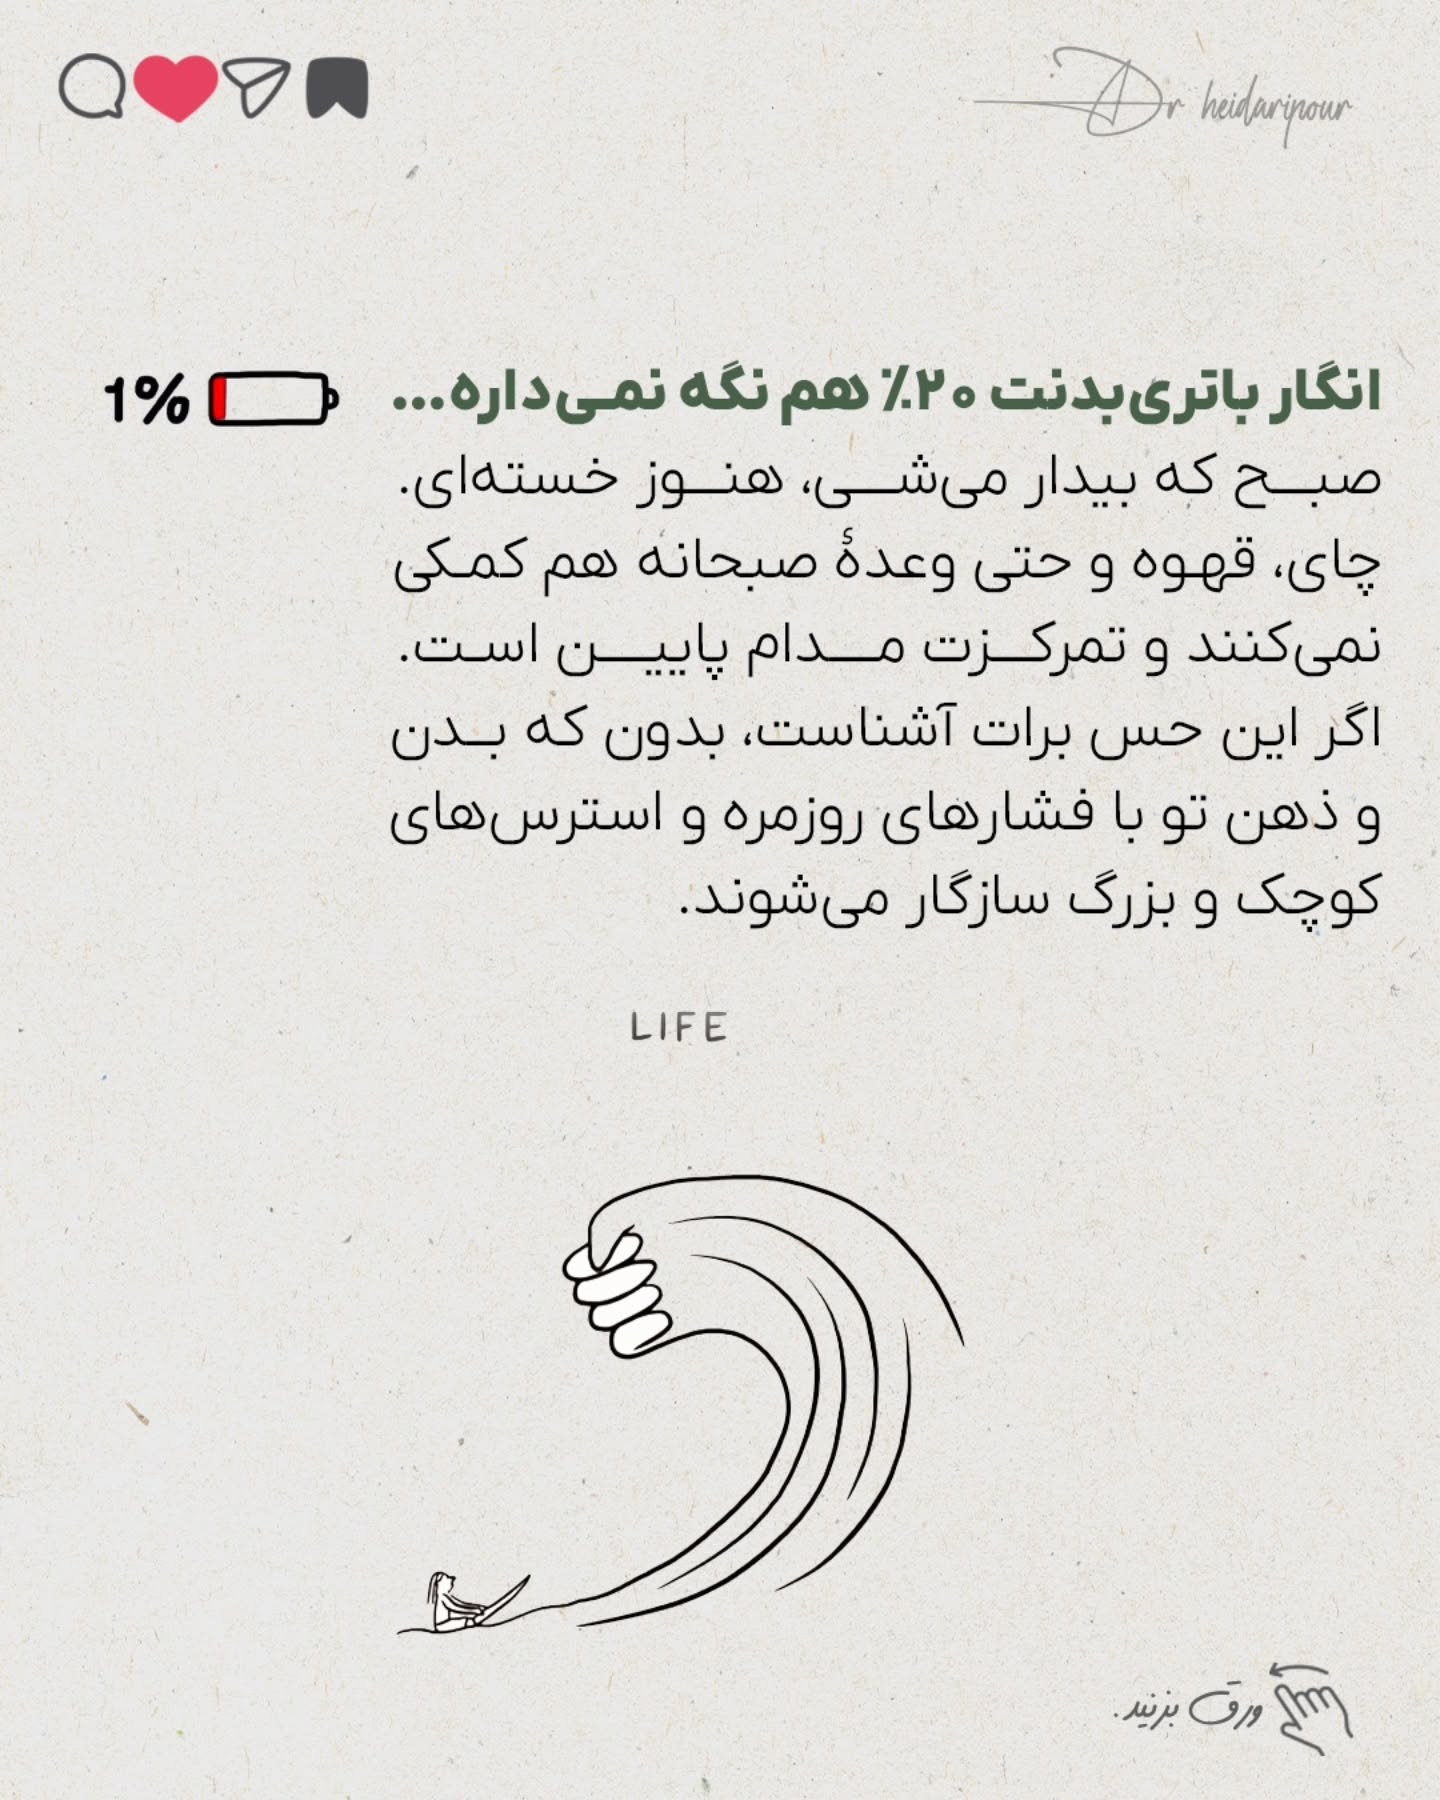 Dr heidaripour
انگار باتری‌بدنت ۲۰٪ هم نگه نمی‌داره...
1%
صبح که بیدار می‌شی، هنوز خسته‌ای.
چای، قهوه و حتی وعدهٔ صبحانه هم کمکی
نمی‌کنند و تمرکزت مدام پایین است.
اگر این حس برات آشناست، بدون که بدن
و ذهن تو با فشارهای روزمره و استرس‌های
کوچک و بزرگ سازگار می‌شوند.
LIFE
ورق بزنید.